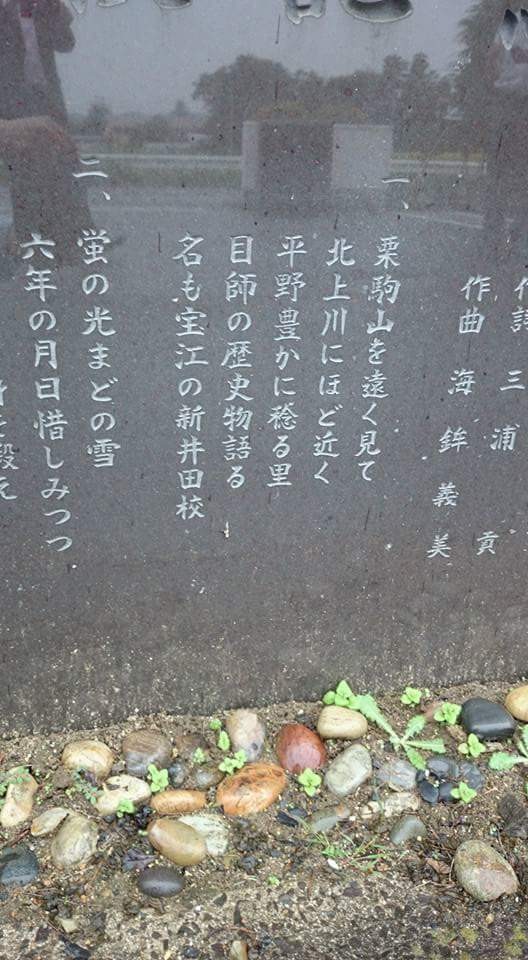 作詩 三浦 貢
作曲 海鉾義美
一、
栗駒山を遠く見て
北上川にほど近く
平野豊かに稔る里
目師の歴史物語る
名も宝江の新井田校
二、
蛍の光まどの雪
六年の月日惜しみつつ